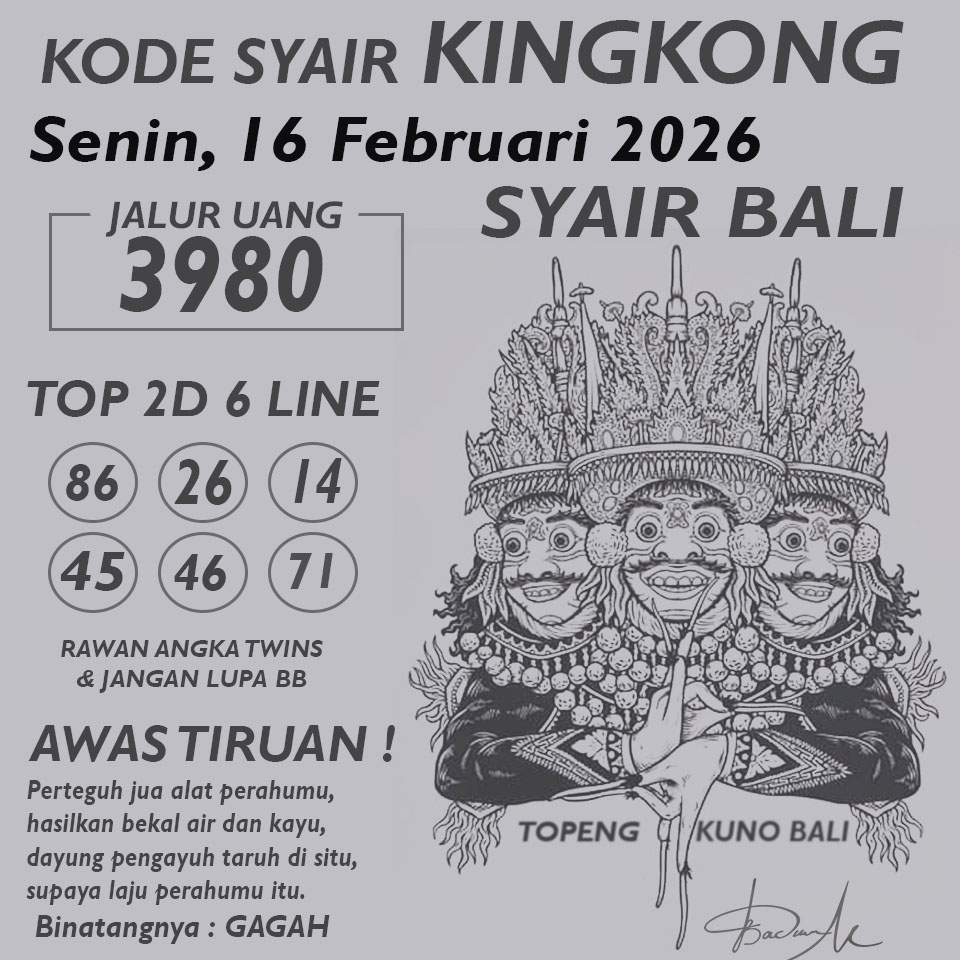 KODE SYAIR KINGKONG
Senin, 16 Februari 2026
SYAIR BALI
JALUR UANG
3980
TOP 2D 6 LINE
86 26 14
45 46 71
RAWAN ANGKA TWINS
& JANGAN LUPA BB
AWAS TIRUAN !
Perteguh jua alat perahumu,
hasilkan bekal air dan kayu,
dayung pengayuh taruh di situ,
supaya laju perahumu itu.
Binatangnya : GAGAH
TOPENG KUNO BALI